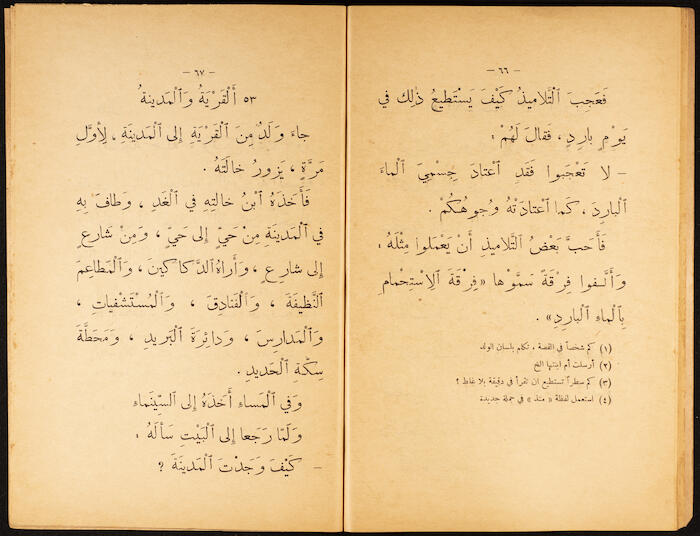 – ٦٦ –
فَعَجِبَ ٱلْتَّلاميذُ كَيْفَ يَسْتَطيعُ ذٰلِك في
يَوْمٍ بارِدٍ ، فَقالَ لَهُمْ :
– لا تَعْجَبوا فَقَدِ ٱعْتادَ جِسْمِيَ ٱلْماءَ
ٱلْبارِدَ ، كَما ٱعْتادَتْهُ وُجوهُكُمْ .
فَأَحَبَّ بَعْضُ ٱلْتَّلاميذِ أَنْ يَعْمَلوا مِثْلَهُ :
وَأَلَّفوا فِرْقَةً سَمَّوْها « فِرْقَةَ ٱلِاسْتِحْمامِ
بِٱلْماءِ ٱلْبارِدِ » .
(١) كم شخصاً في القصة . تكلم بلسان الولد
(٢) أرسلت أم ابنتها الخ
(٣) كم سطراً تستطيع ان تقرأ في دقيقة بلا غلط ؟
(٤) استعمل لفظة « منذ » في جملة جديدة
– ٦٧ –
٥٣ أَلْقَرْيَةُ وَٱلْمَدينةُ
جاءَ وَلَدٌ مِنَ ٱلْقَرْيَةِ إِلى ٱلْمَدينَةِ ، لِأَوَّلِ
مَرَّةٍ ، يَزورُ خالَتَهُ .
فَأَخَذَهُ ٱبْنُ خالتِهِ في ٱلْغَدِ ، وَطافَ بِهِ
في ٱلْمَدينَةِ مِنْ حَيٍّ إِلى حَيٍّ ، وَمِنْ شارِعٍ
إِلى شارِعٍ ، وَأَراهُ ٱلدَّكاكينَ ، وَٱلْمَطاعِمَ
ٱلنَّظيفَةَ ، وَٱلْفَنادِقَ ، وَٱلْمُسْتَشْفَياتِ ،
وَٱلْمَدارِسَ ، وَدائِرَةَ ٱلْبَريدِ ، وَمَحَطَّةَ
سِكَّةِ ٱلْحَديدِ .
وَفي ٱلْمَساءِ أَخَذَهُ إِلى ٱلسّينَماءِ
وَلَمّا رَجَعا إِلى ٱلْبَيْتِ سَأَلَهُ :
– كَيْفَ وَجَدْتَ ٱلْمَدينَةَ ؟